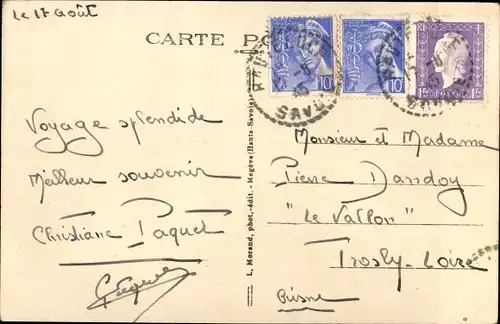 Le 17 août
CARTE PO
Voyage splendide
Meilleur souvenir
Christiane Paquet
L. Morand, phot.-édit. - Megève (Haute-Savoie)
10
10
Monsieur et Madame
Pierre Dandoy
"Le Vallon"
Trosly-Loire
Aisne